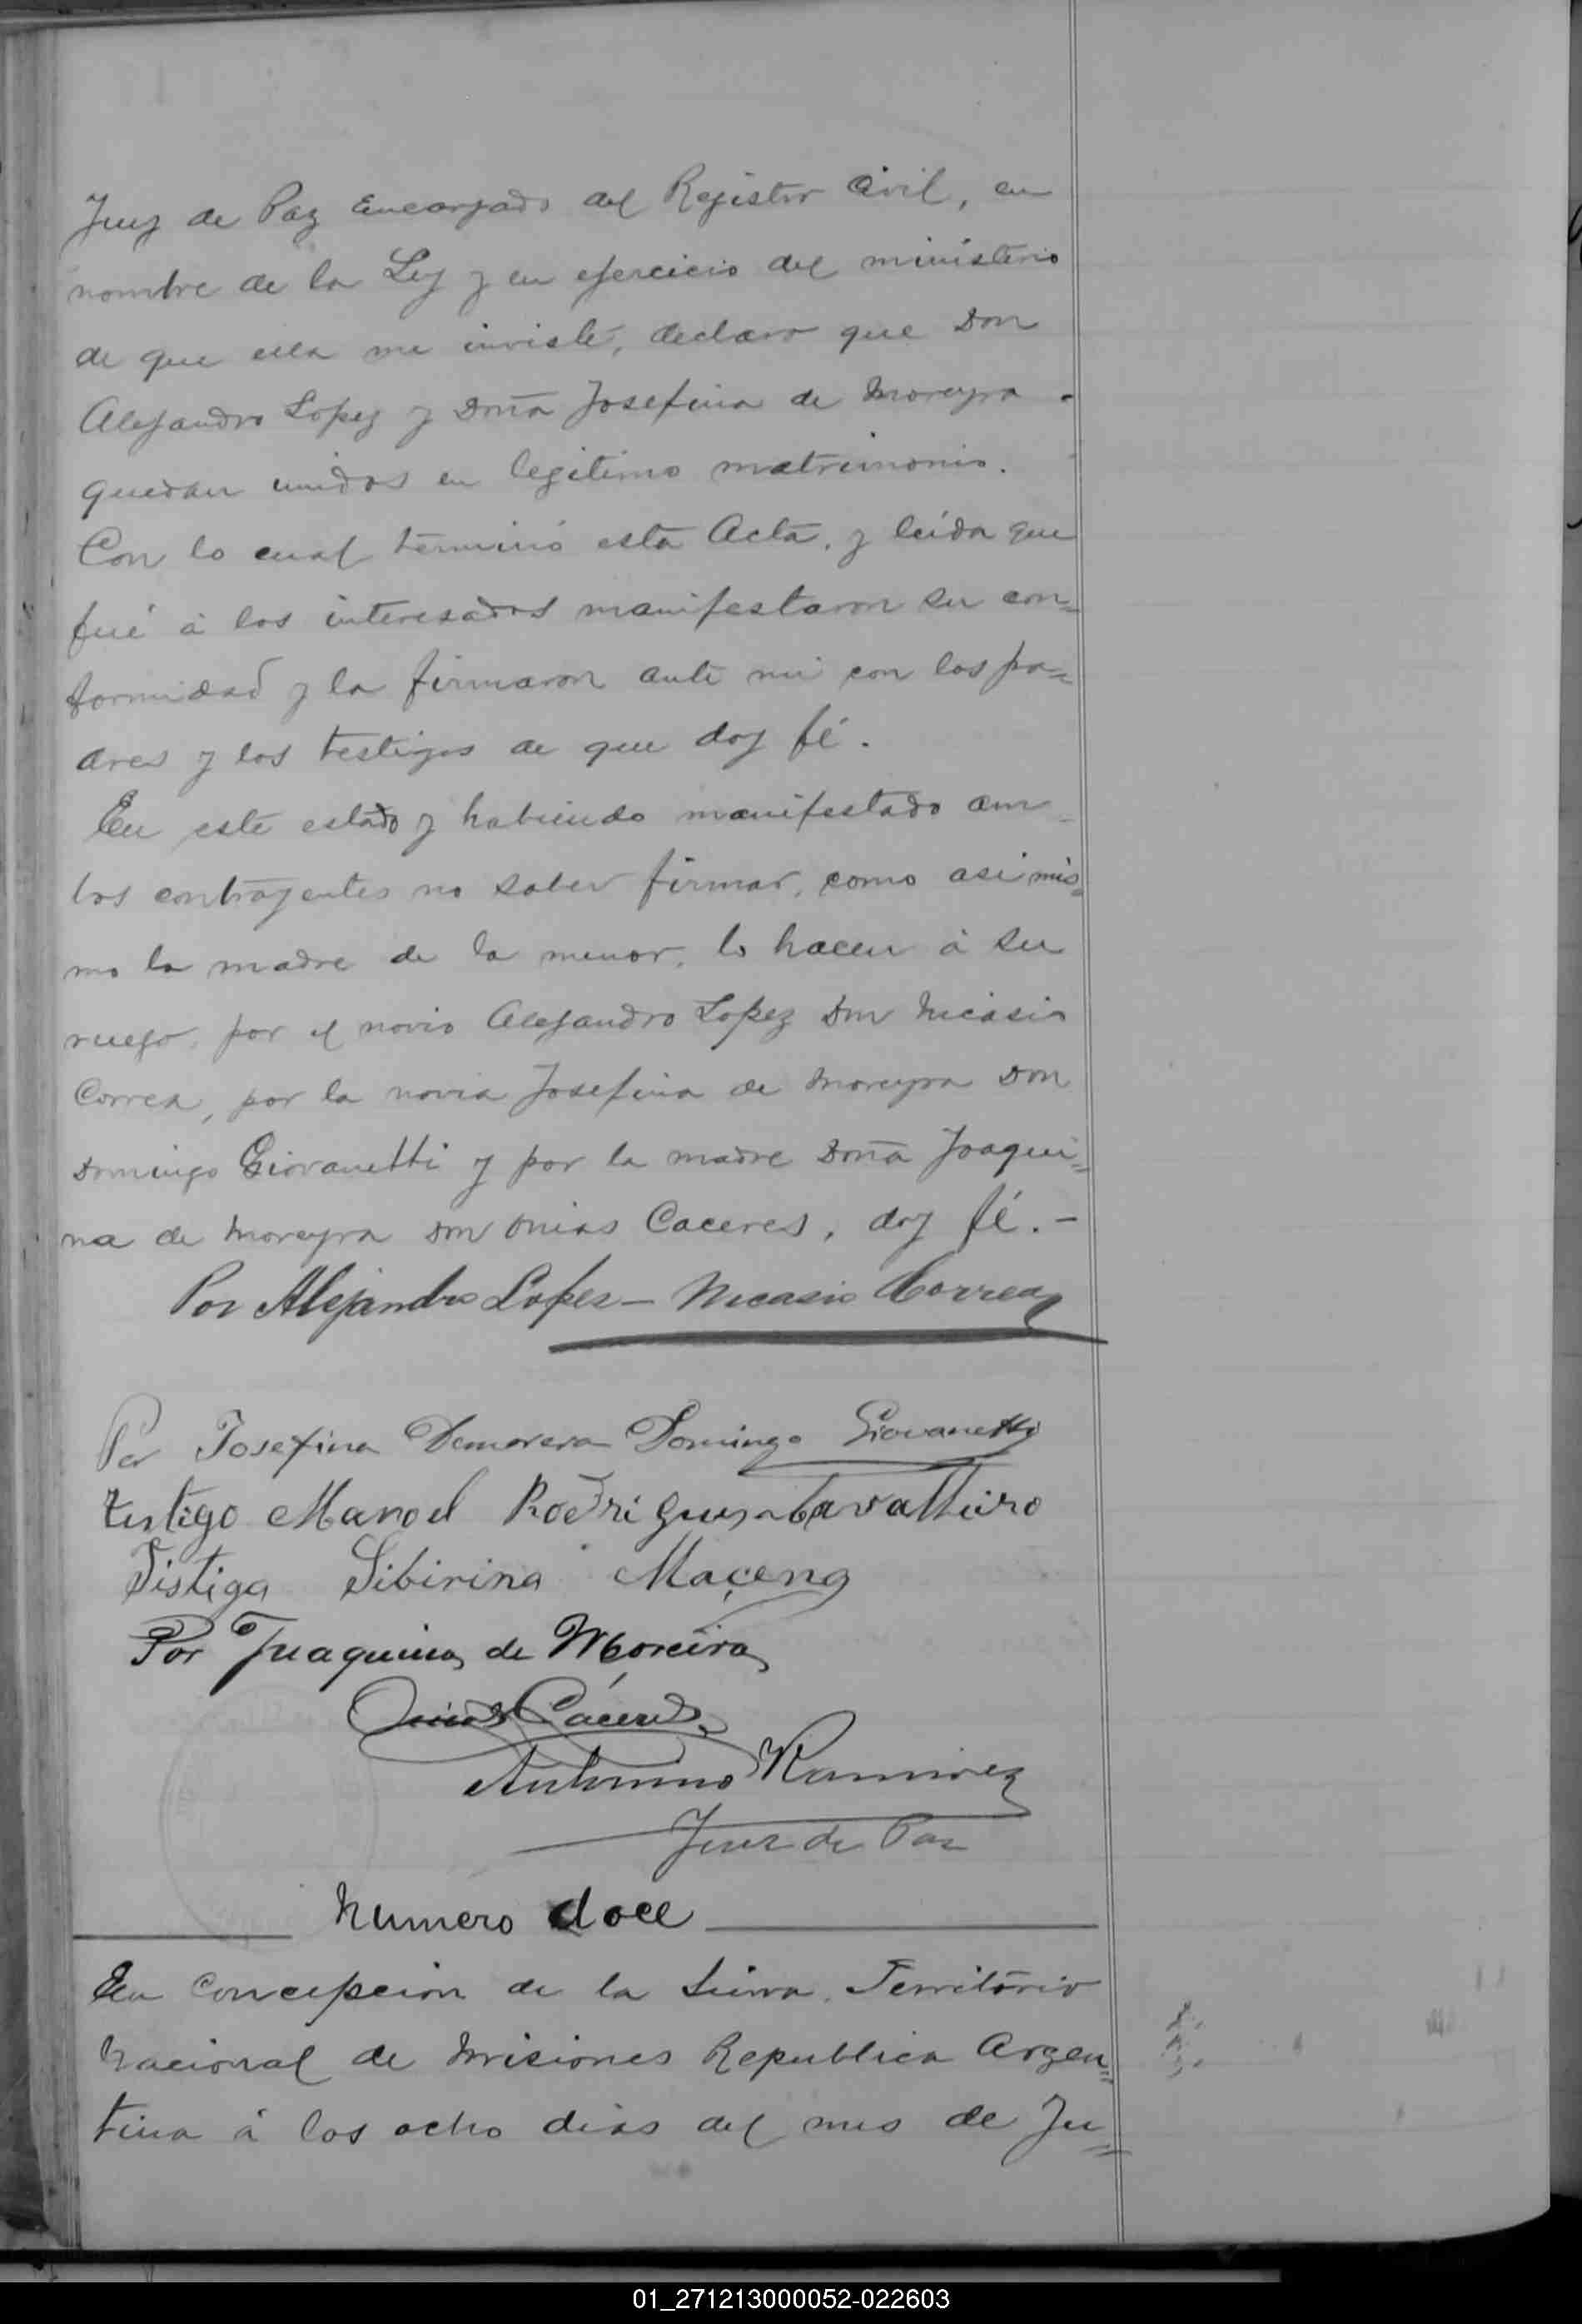 Juez de Paz Encargado del Registro Civil, en
nombre de la Ley y en ejercicio del ministerio
de que ella me inviste, declaro que Don
Alejandro Lopez y Doña Josefina de Moreyra -
quedan unidos en legitimo matrimonio.
Con lo cual terminó esta Acta, y leida que
fué á los interesados manifestaron su con=
formidad y la firmaron ante mi con los pa=
dres y los testigos de que doy fé.
En este estado y habiendo manifestado am-
bos contrayentes no saber firmar, como asi mis=
mo la madre de la menor, lo hacen á su
ruego, por el novio Alejandro Lopez Don Nicasio
Correa, por la novia Josefina de Moreyra Don
Domingo Giovanetti y por la madre Doña Joaqui=
na de Moreyra Don Onias Caceres, doy fé. -
Por Alejandro Lopez - Nicasio Correa
Por Josefina Demorera Domingo Giovanetti
testigo Manoel Rodrigues Cavalheiro
Tistiga Sibirina Maçena
Por Juaquina de Moreira
Onias Cáceres
Antonino Ramirez
Juez de Paz
Numero doce
En Concepcion de la Sierra, Territorio
Nacional de Misiones Republica Argen=
tina á los ocho dias del mes de Ju=
01_271213000052-022603